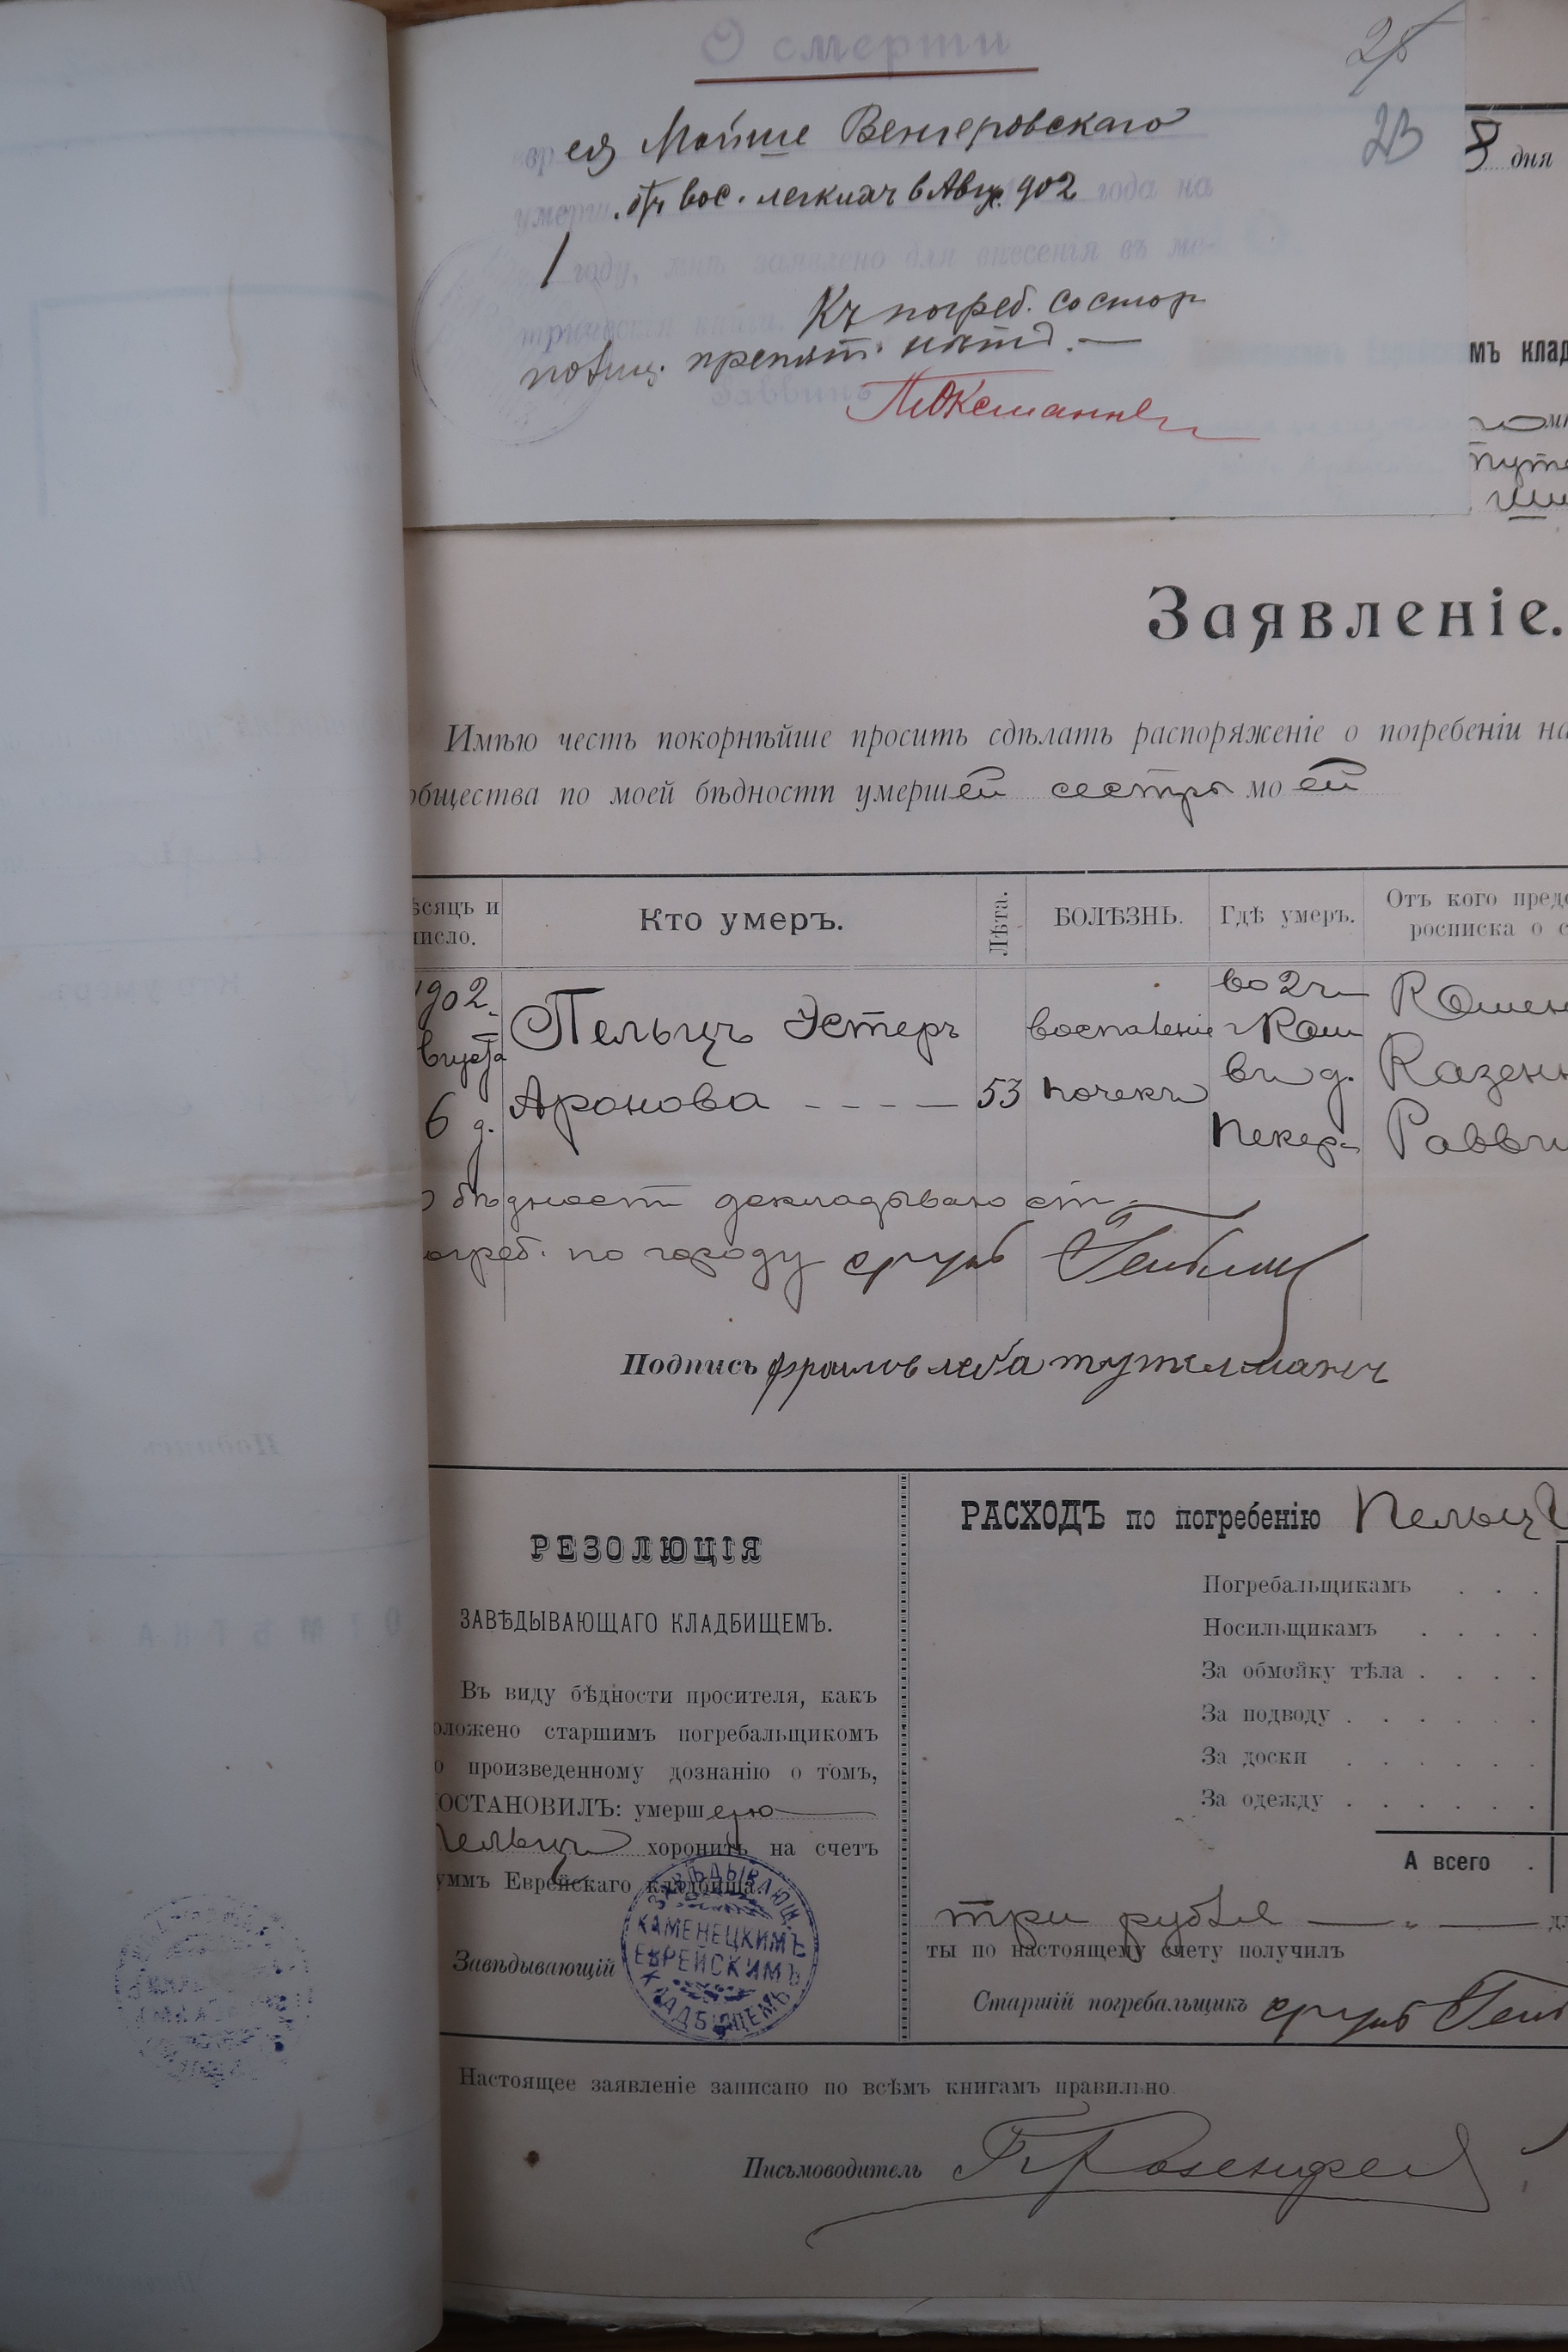 О смерти
25
23
ея Мойше Венгеровскаго
8 дня
умерш от вос. легких в Авг. 902 года на
году, мнѣ заявлено для внесенія въ ме-
трическія книги. Къ погреб. со стор
полиц. препят. нѣтъ.
Раввинъ
мъ клад
Заявленіе.
Имѣю честь покорнѣйше просить сдѣлать распоряженіе о погребеніи на
общества по моей бѣдности умершей сестры моей
ѣсяцъ и число.
Кто умеръ.
Лѣта.
БОЛѢЗНЬ.
Гдѣ умеръ.
Отъ кого предс
росписка о с
1902
вгуста
6 д.
Пельцъ Эстеръ
Аронова
53
воспаленіе
почекъ
во 2 ч
г Кам
в д.
Пекер
Камен
Казенн
Равви
бѣдност докладываю ст.
огреб. по городу
Подпись
РЕЗОЛЮЦІЯ
ЗАВѢДЫВАЮЩАГО КЛАДБИЩЕМЪ.
Въ виду бѣдности просителя, какъ
оложено старшимъ погребальщикомъ
о произведенному дознанію о томъ,
ПОСТАНОВИЛЪ: умершую
Пельцъ хоронить на счетъ
уммъ Еврейскаго кладбища.
Завѣдывающій
ЗАВѢДЫВАЮЩ.
КАМЕНЕЦКИМЪ
ЕВРЕЙСКИМЪ
КЛАДБИЩЕМЪ
РАСХОДЪ по погребенію Пельцъ
Погребальщикамъ
Носильщикамъ
За обмойку тѣла
За подводу
За доски
За одежду
А всего
три рубля
ты по настоящему счету получилъ
Старшій погребальщикъ
Настоящее заявленіе записано по всѣмъ книгамъ правильно.
Письмоводитель